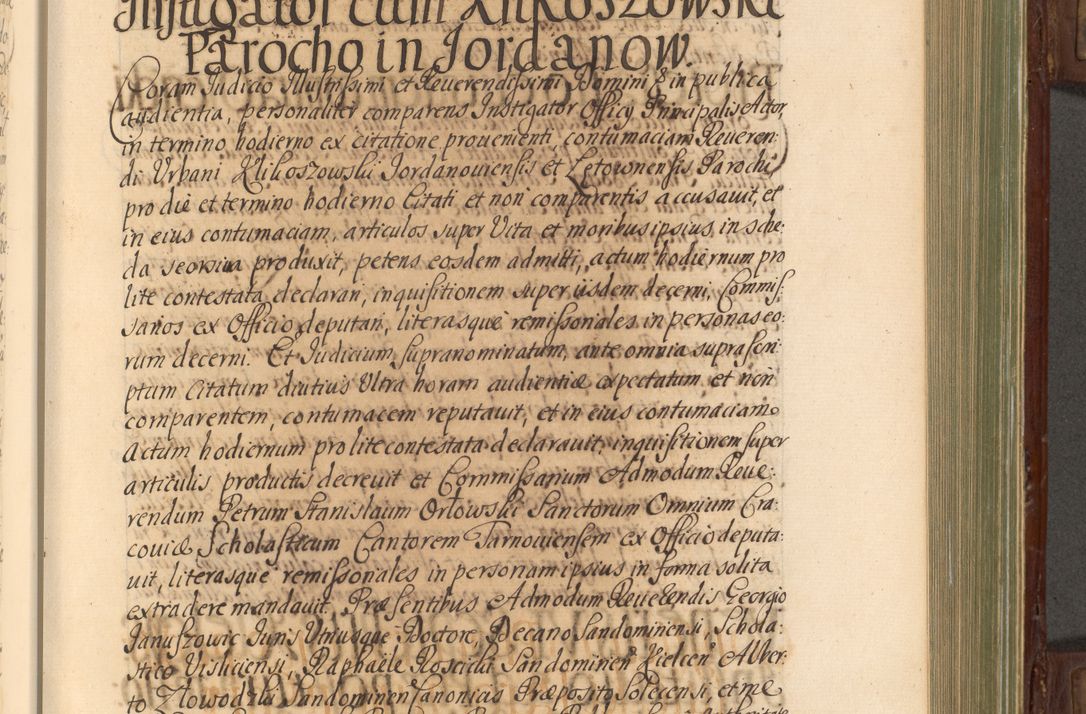 Instigator cum Klikoszowski
Parocho in Jordanow.
Coram Iudicio Illustrissimi et Reuerendissimi Domini & in publica
audientia, personaliter comparens Instigator Officij Principalis Actor,
in termino hodierno ex citatione prouenienti, contumaciam Reueren:
di Urbani Klikoszowski Iordanouiensis et Letownensis Parochi
pro die et termino hodierno Citati et non comparentis accusauit, et
in eius contumaciam, articulos super Vita et moribus ipsius, in sche:
da seorsiua produxit, petens eosdem admitti, actum hodiernum pro
lite contestata declarari, inquisitionem super iisdem decerni, Commis:
sarios ex Officio deputari, literasque remissoriales in personas eo:
rum decerni. Et Iudicium supranominatum, ante omnia suprascri:
ptum Citatum diutius Ultra horam audientiæ expectatum et non
comparentem, contumacem reputauit, et in eius contumaciam
Actum hodiernum pro lite contestata declarauit, inquisitionem super
articulis productis decreuit et Commissarium Admodum Reue:
rendum Petrum Stanislaum Orłowski Sanctorum Omnium Cra:
couiæ Scholasticum Cantorem Tarnouiensem ex Officio deputa:
uit, literasque remissoriales in personam ipsius in forma solita
extradere mandauit. Præsentibus Admodum Reuerendis Georgio
Ianuszowic Iuris Utriusque Doctore, Decano Sandominensi, Schola:
stico Visliciensi, Raphaele Roscicki Sandominen Kielcen Alber:
to Nowodzki Sandominen Canonicis Præposito Solecensi, et me